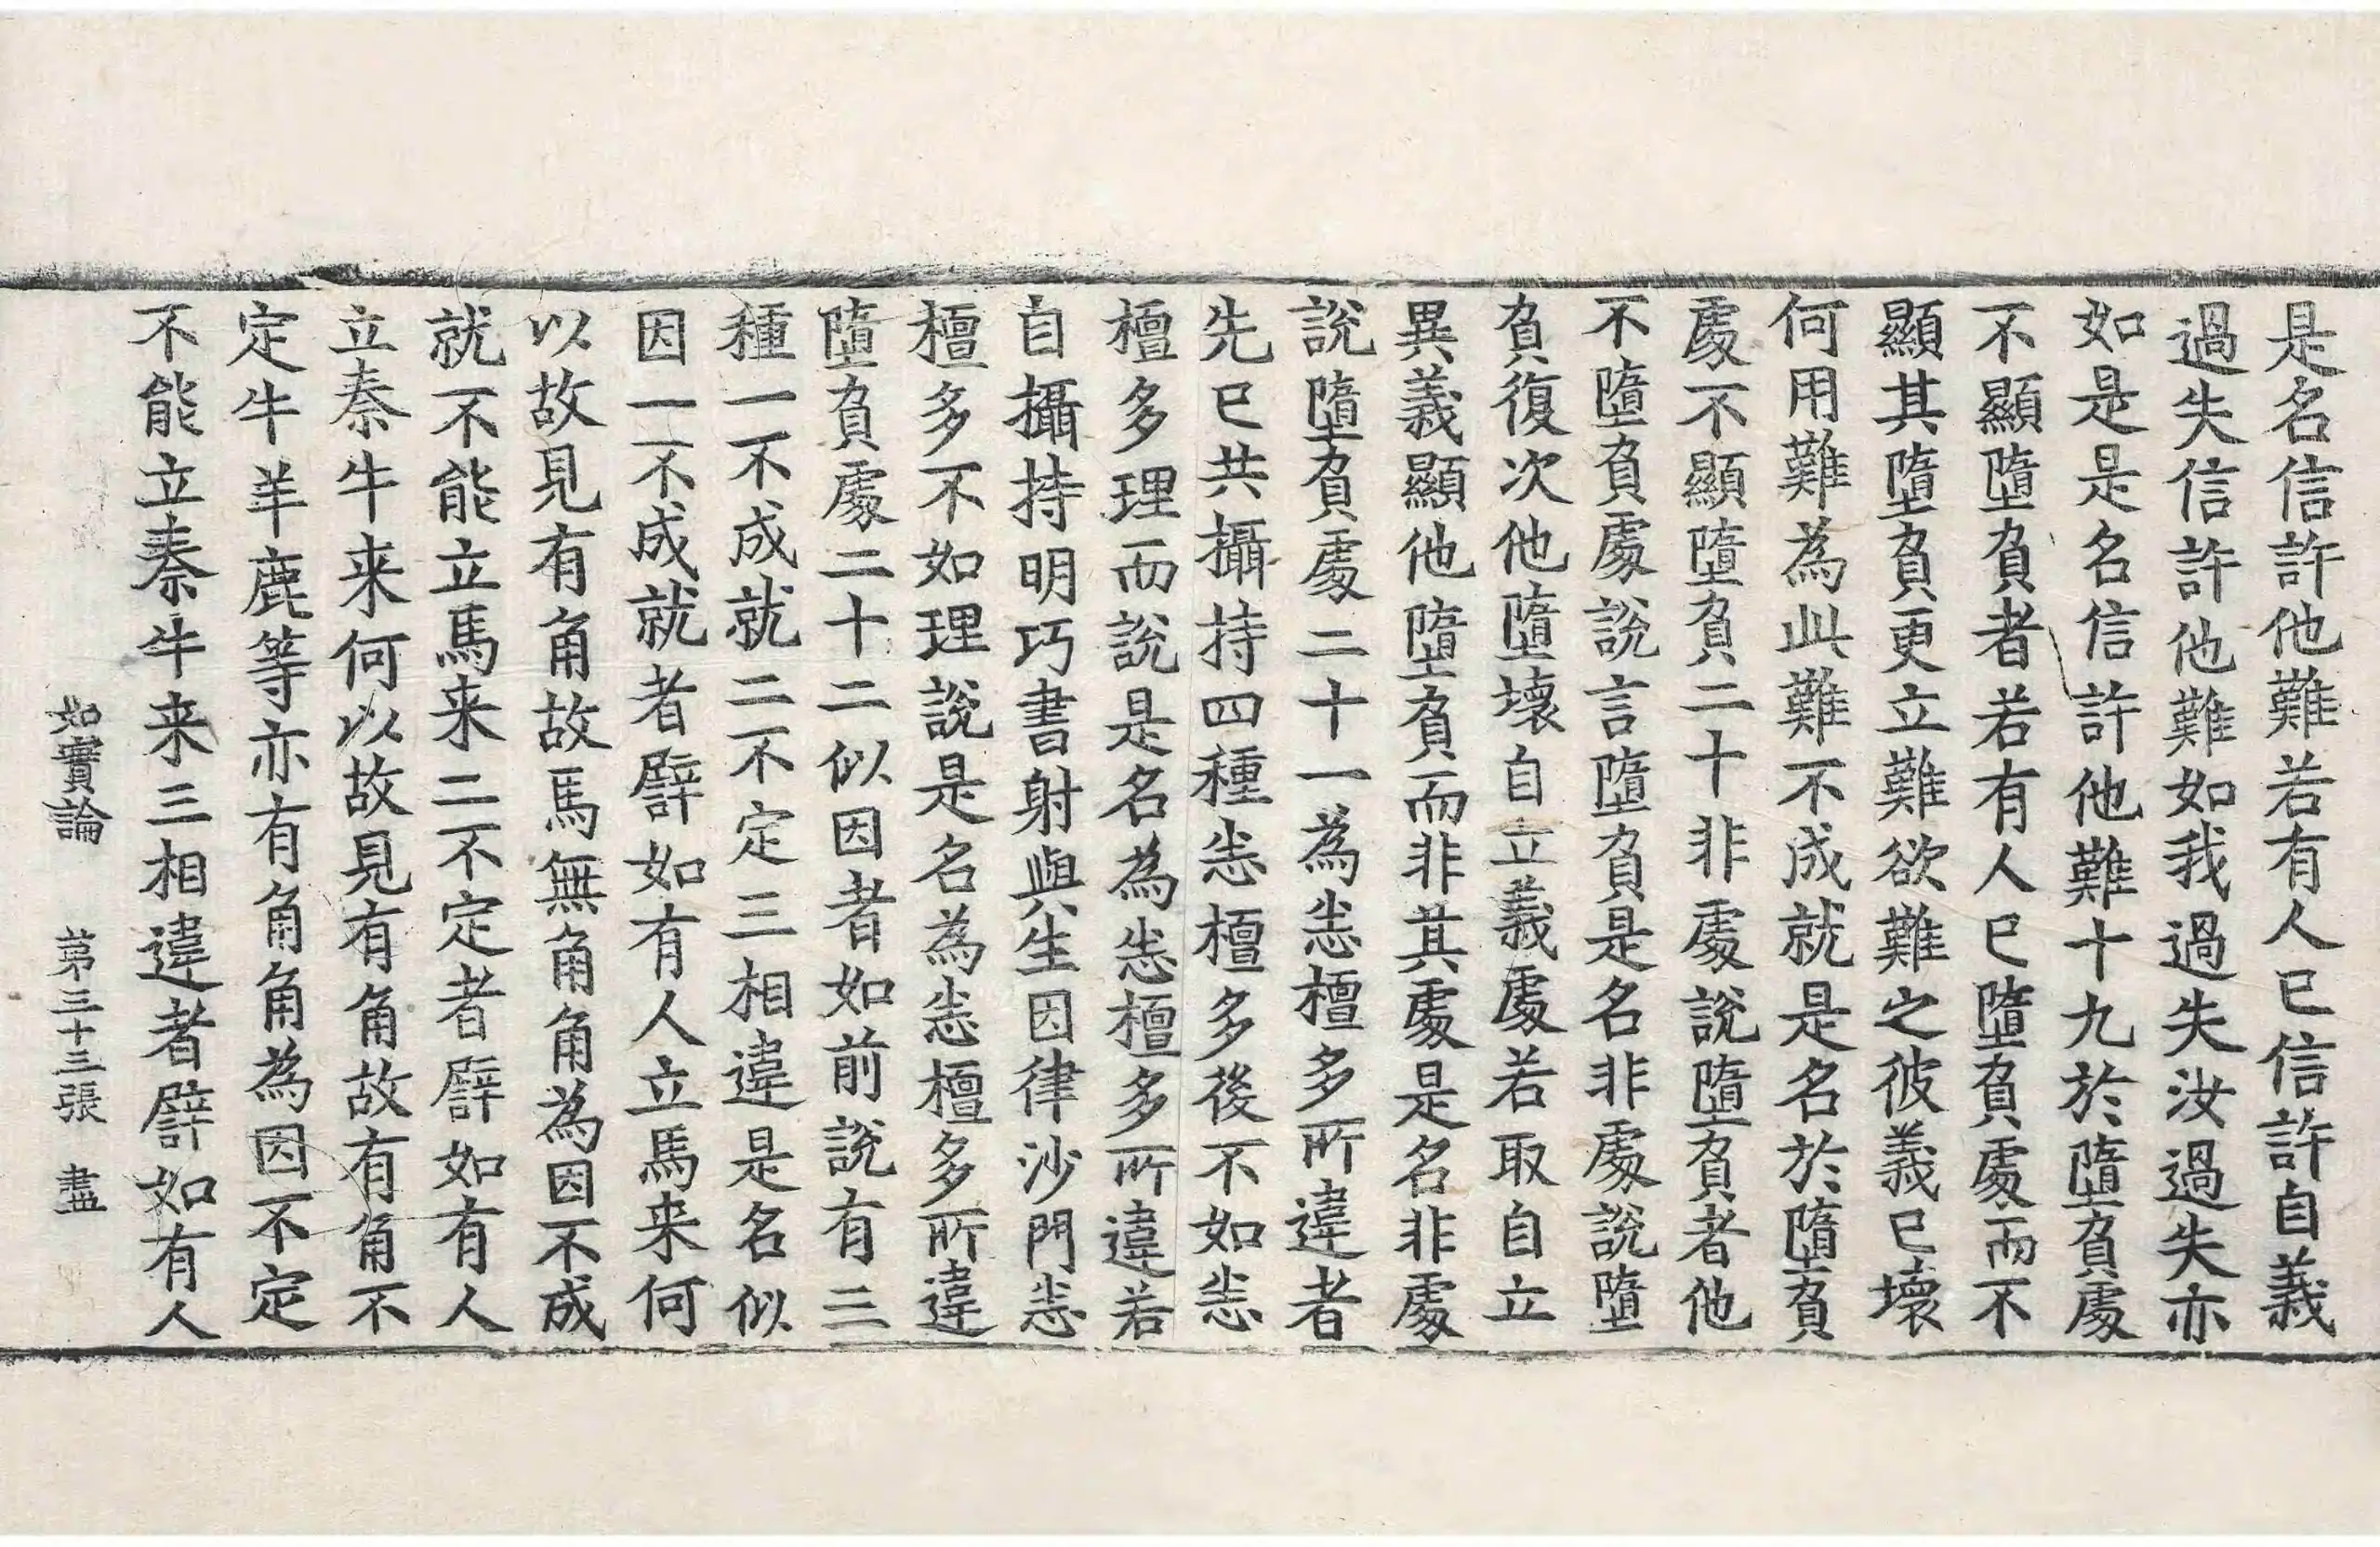 是名信許他難若有人已信許自義
過失信許他難如我過失汝過失亦
如是是名信許他難十九於墮負處
不顯墮負者若有人已墮負處而不
顯其墮負更立難欲難之彼義已壞
何用難為此難不成就是名於墮負
處不顯墮負二十非處說墮負者他
不墮負處說言墮負是名非處說墮
負復次他墮壞自立義處若取自立
異義顯他墮負而非其處是名非處
說墮負處二十一為悉檀多所違者
先已共攝持四種悉檀多後不如悉
檀多理而說是名為悉檀多所違若
自攝持明巧書射與生因律沙門悉
檀多不如理說是名為悉檀多所違
墮負處二十二似因者如前說有三
種一不成就二不定三相違是名似
因一不成就者譬如有人立馬来何
以故見有角故馬無角角為因不成
就不能立馬来二不定者譬如有人
立桼牛来何以故見有角故有角不
定牛羊鹿等亦有角角為因不定
不能立桼牛来三相違者譬如有人
如實論　第三十三張　盡